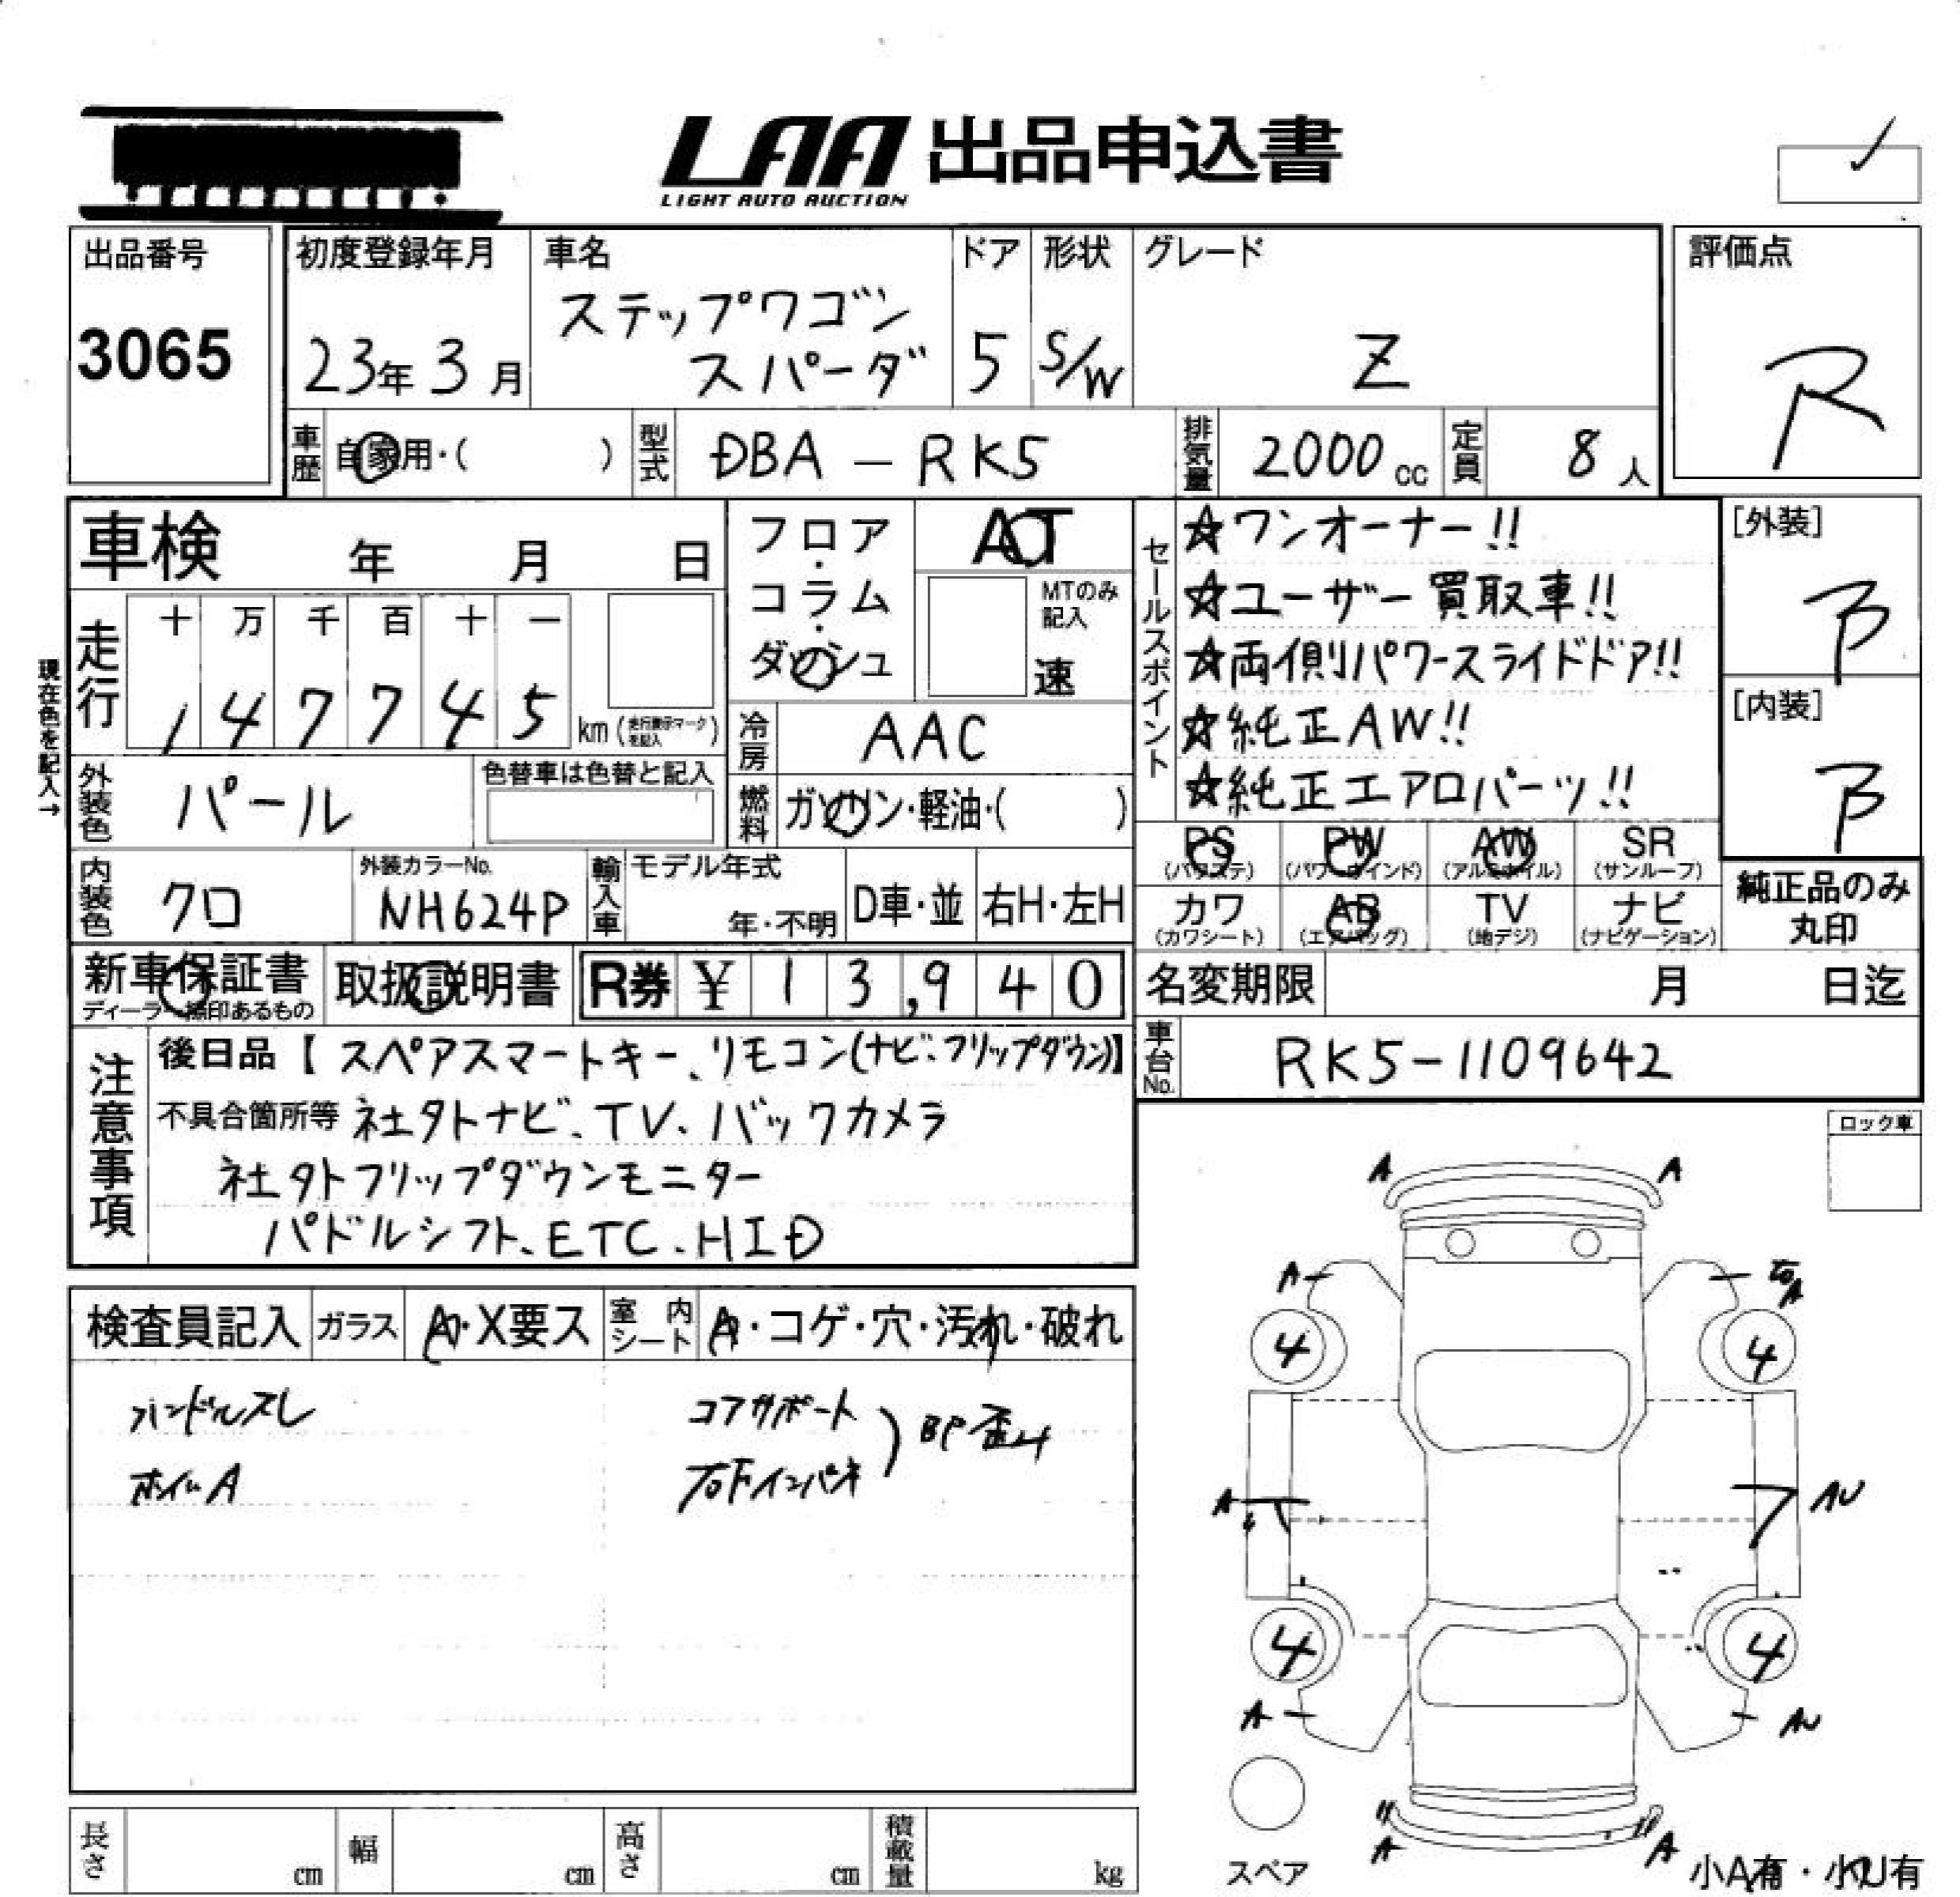 LAA 出品申込書
LIGHT AUTO AUCTION
出品番号
3065
初度登録年月
23年 3月
車名
ステップワゴン
スパーダ
ドア
5
形状
S/W
グレード
Z
評価点
R
車歴 自家用・( )
型式 DBA - RK5
排気量 2000cc
定員 8人
車検 年 月 日
フロア・コラム・ダッシュ
AT
MTのみ記入
速
走行
十 万 千 百 十 一
1 4 7 7 4 5 km (走行表示マークを記入)
現在色を記入→
外装色 パール
色替車は色替と記入
冷房 AAC
燃料 ガソリン・軽油・( )
内装色 クロ
外装カラーNo.
NH624P
輸入車
モデル年式
年・不明
D車・並
右H・左H
セールスポイント
☆ワンオーナー!!
☆ユーザー買取車!!
☆両側パワースライドドア!!
☆純正AW!!
☆純正エアロパーツ!!
[外装]
B
[内装]
B
PS (パワステ)
PW (パワーウインド)
AW (アルミホイル)
SR (サンルーフ)
カワ (カワシート)
AB (エアバッグ)
TV (地デジ)
ナビ (ナビゲーション)
純正品のみ
丸印
新車保証書
ディーラー捺印あるもの
取扱説明書
R券 ¥ 1 3,9 4 0
名変期限 月 日迄
車台No. RK5-1109642
注意事項
後日品【スペアスマートキー、リモコン(ナビ、フリップダウン)】
不具合箇所等 社外ナビ、TV、バックカメラ
社外フリップダウンモニター
パドルシフト、ETC、HID
ロック車
検査員記入
ガラス A・X要ス
室内シート A・コゲ・穴・汚れ・破れ
ハンドルスレ
ホイルA
コアサポート
右Fインパネ
BP歪み
A A
A A
4 4
A AU
4 4
A AU
A A
スペア
小A有・小U有
長さ cm
幅 cm
高さ cm
積載量 kg